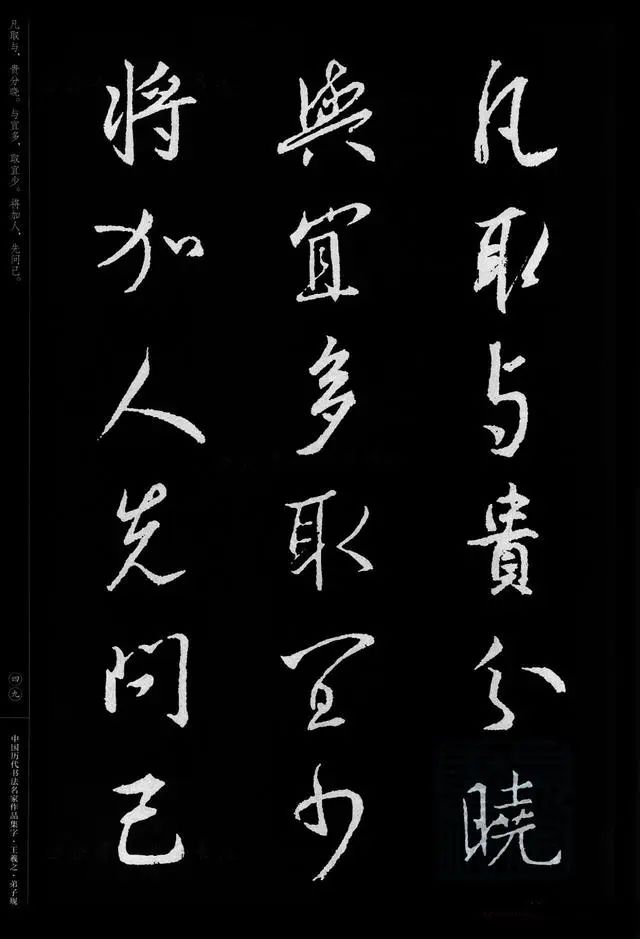 凡取与貴分曉
與宜多取宜少
將加人先問己
凡取与、贵分晓。与宜多、取宜少。将加人、先问己。
四九
中国历代书法名家作品集字·王羲之·弟子规